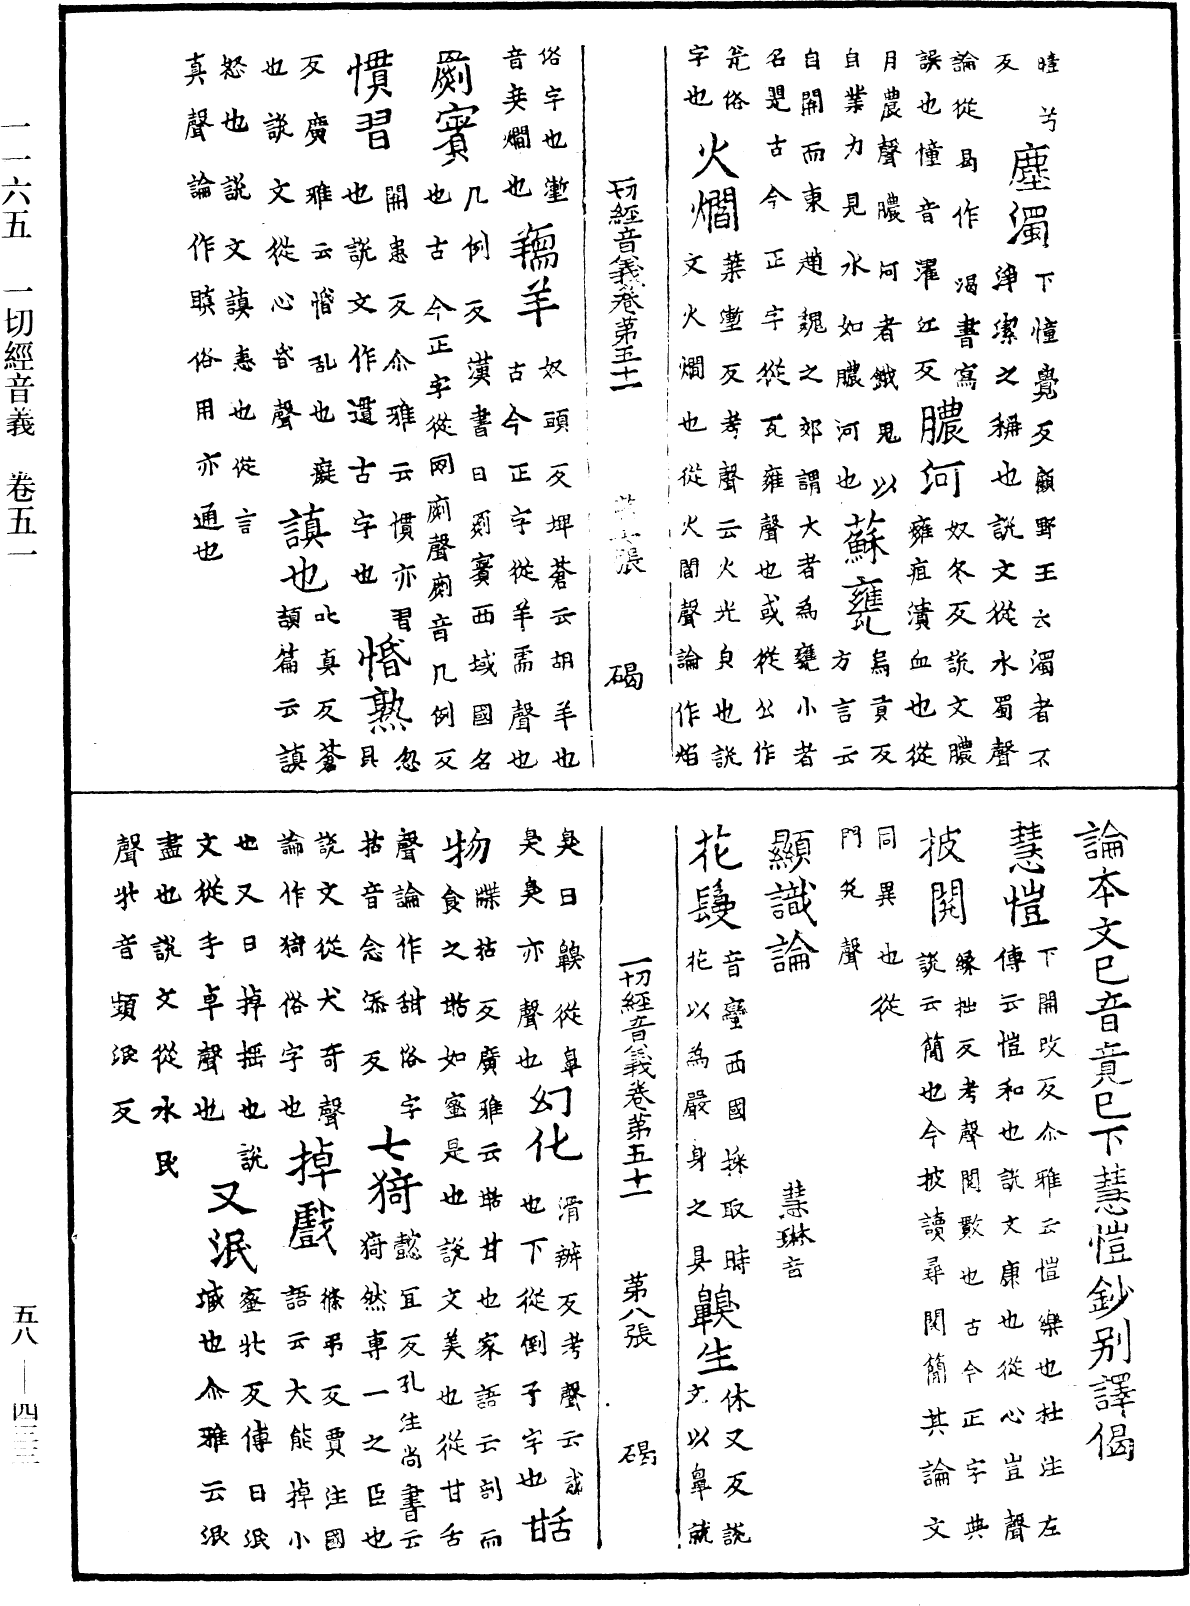 芳
反
塵濁
下憧覺反顧野王云濁者不
淨潔之稱也說文從水蜀聲
論從曷作㵣書寫
誤也憧音濯江反
膿河
奴冬反說文膿
癰疽潰血也從
月農聲膿河者餓鬼以
自業力見水如膿河也
蘇甕
烏貢反
方言云
自關而東趙魏之郊謂大者為甕小者
名罌古今正字從瓦雍聲也或從公作
瓮俗
字也
火爓
葉壍反考聲云火光皃也說
文火爓也從火閻聲論作焰
一切經音義卷第五十一 第七張 碣
俗字也壍
音妾爓也
羺羊
奴頭反埤蒼云胡羊也
古今正字從羊需聲也
罽賓
几例反漢書曰罽賓西域國名
也古今正字從网㓹聲㓹音几例反
慣習
開患反尒雅云慣亦習
也說文作遦古字也
惛熟
忽
昆
反廣雅云惛乱也癡
也說文從心昏聲
謓也
叱真反蒼
頡篇云謓
怒也說文謓恚也從言
真聲論作瞋俗用亦通也
論本文已音竟已下慧愷鈔別譯偈
慧愷
下開改反尒雅云愷樂也杜注左
傳云愷和也說文康也從心豈聲
披閱
緣拙反考聲閱數也古今正字典
說云簡也今披讀尋閱簡其論文
同異也從
門兌聲
顯識論 慧琳音
花鬘
音蠻西國採取時
花以為嚴身之具
齅生
休又反說
文以鼻就
一切經音義卷第五十一 第八張 碣
臭曰齅從鼻
臭臭亦聲也
幻化
滑辦反考聲云惑
也下從倒予字也
甛
物
牒拈反廣雅云甛甘也家語云剖而
食之甛如蜜是也說文美也從甘舌
聲論作甜俗字
拈音念添反
七猗
懿宜反孔注尚書云
猗然專一之臣也
說文從犬奇聲
論作猗俗字也
掉戲
條弔反賈注國
語云大能掉小
也又曰掉搖也說
文從手卓聲也
又泯
蜜牝反傳曰泯
滅也尒雅云泯
盡也說文從水民
聲牝音頻泯反
一一六五 一切經音義 卷五一
五八—四三三